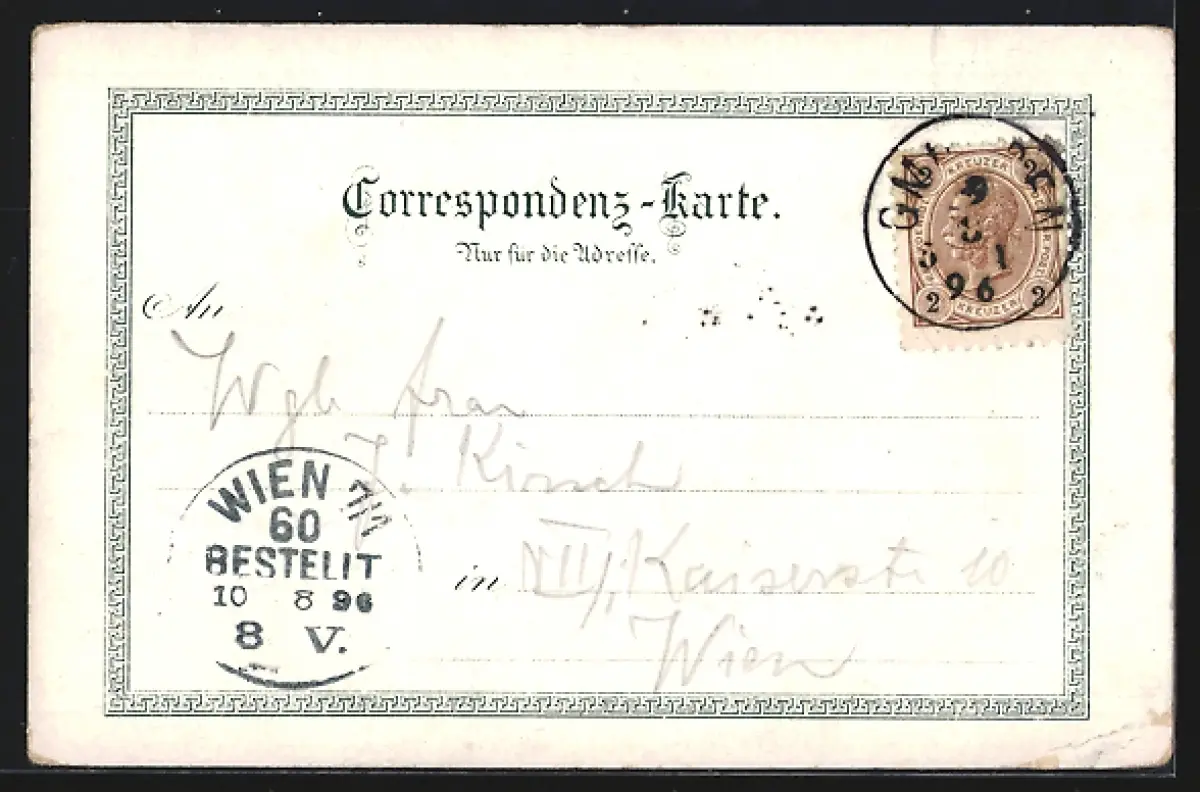 Correspondenz-Karte.
Nur für die Adresse.
An
Wgb frau
J. Kirsch
in VII/, Kaiserstr 10
Wien
KREUZER
2 KREUZER 2
9
8
5 1
96
WIEN 7/1
60
BESTELLT
10 8 96
8 V.